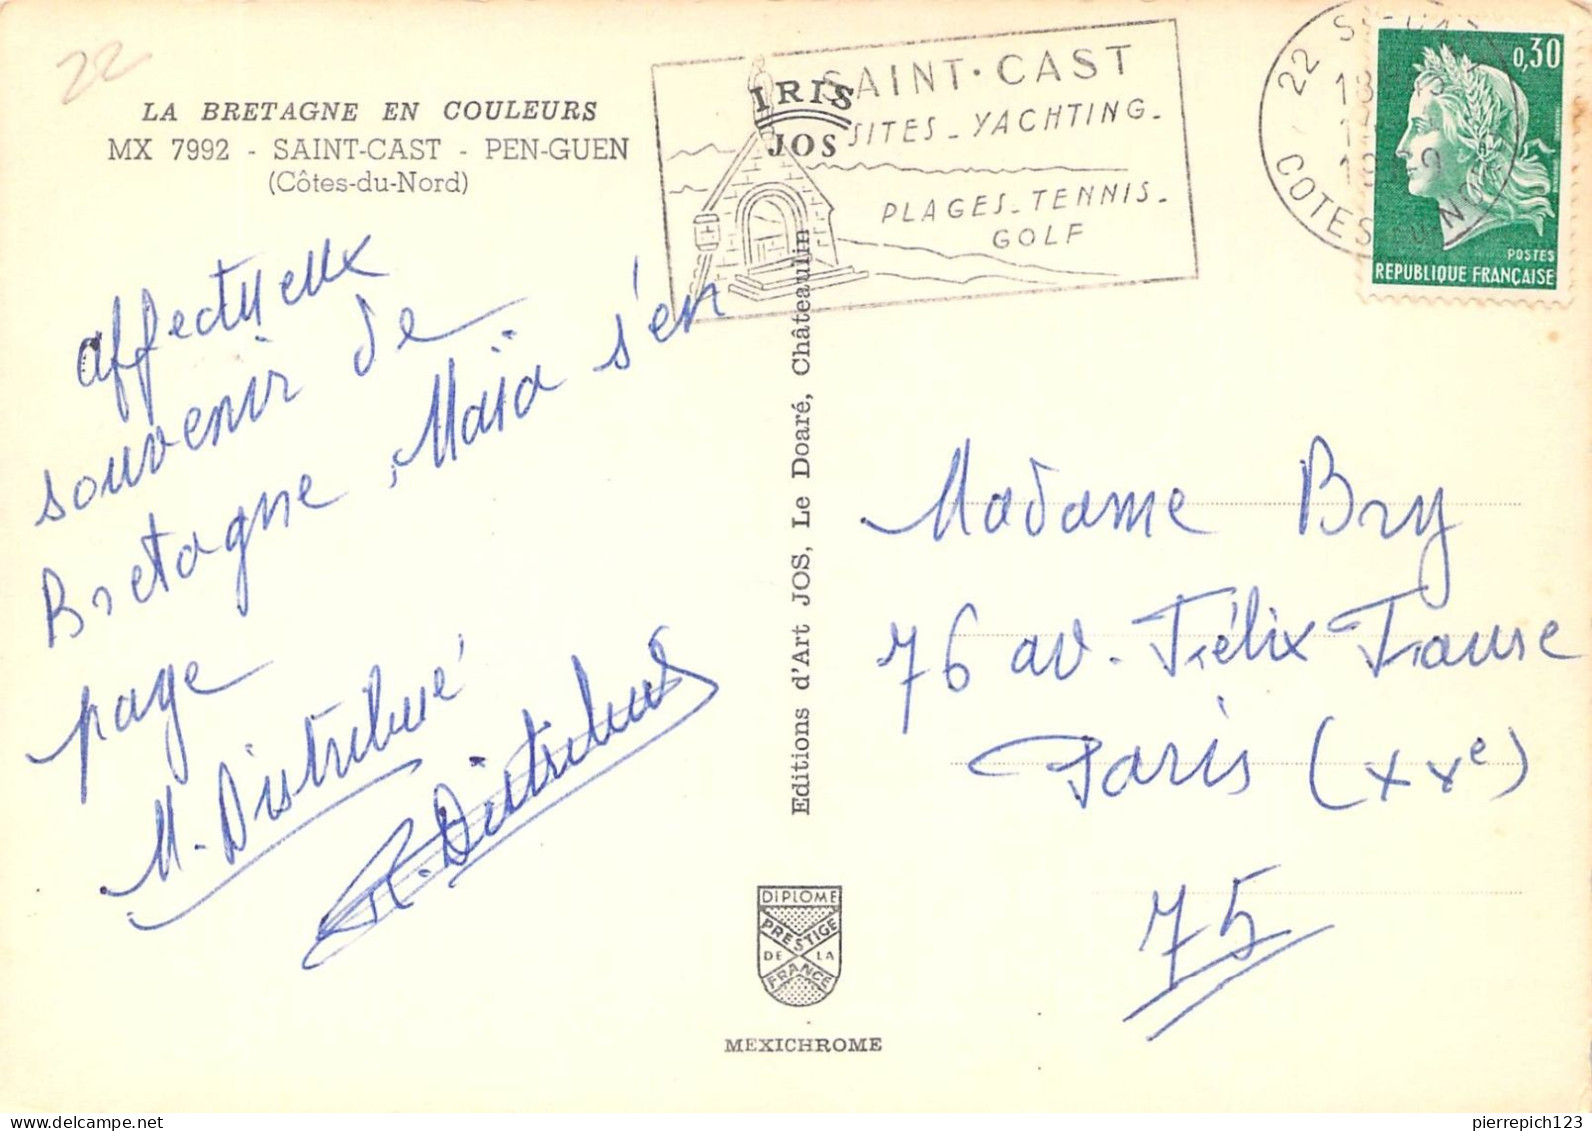 22
LA BRETAGNE EN COULEURS
MX 7992 - SAINT-CAST - PEN-GUEN
(Côtes-du-Nord)
affectueux
souvenir de
Bretagne, Maïa s'en
page
M. Distribué
Editions d'Art JOS, Le Doaré, Châteaulin
IRIS
JOS
SAINT·CAST
SITES - YACHTING -
PLAGES - TENNIS -
GOLF
22
COTES DU NORD
0,30
POSTES
REPUBLIQUE FRANÇAISE
Madame Bry
76 av. Félix Faure
Paris (XXe)
75
DIPLOME
PRESTIGE
DE LA
FRANCE
MEXICHROME
pierrepich123